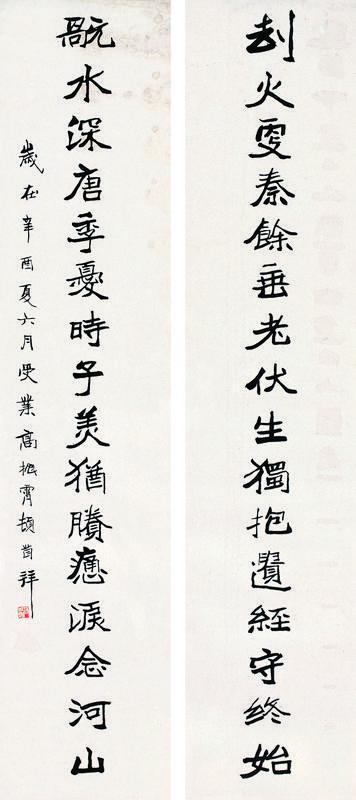 刦火秦餘垂老伏生獨抱遺經守終始
水深唐季憂時子美猶賸淚念河山
歲在辛酉夏六月受業高振霄頓首拜